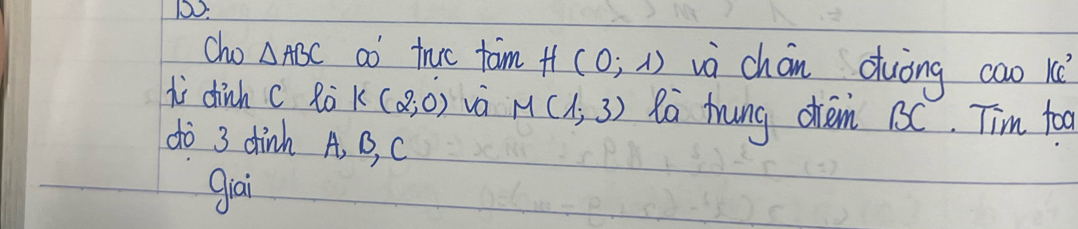 Cho △ABC có trực tâm H (0; 1) và chân đường cao kẻ
từ đỉnh C là K (2;0) và M (1; 3) là trung điểm BC. Tìm toạ
độ 3 đỉnh A, B, C
Giải